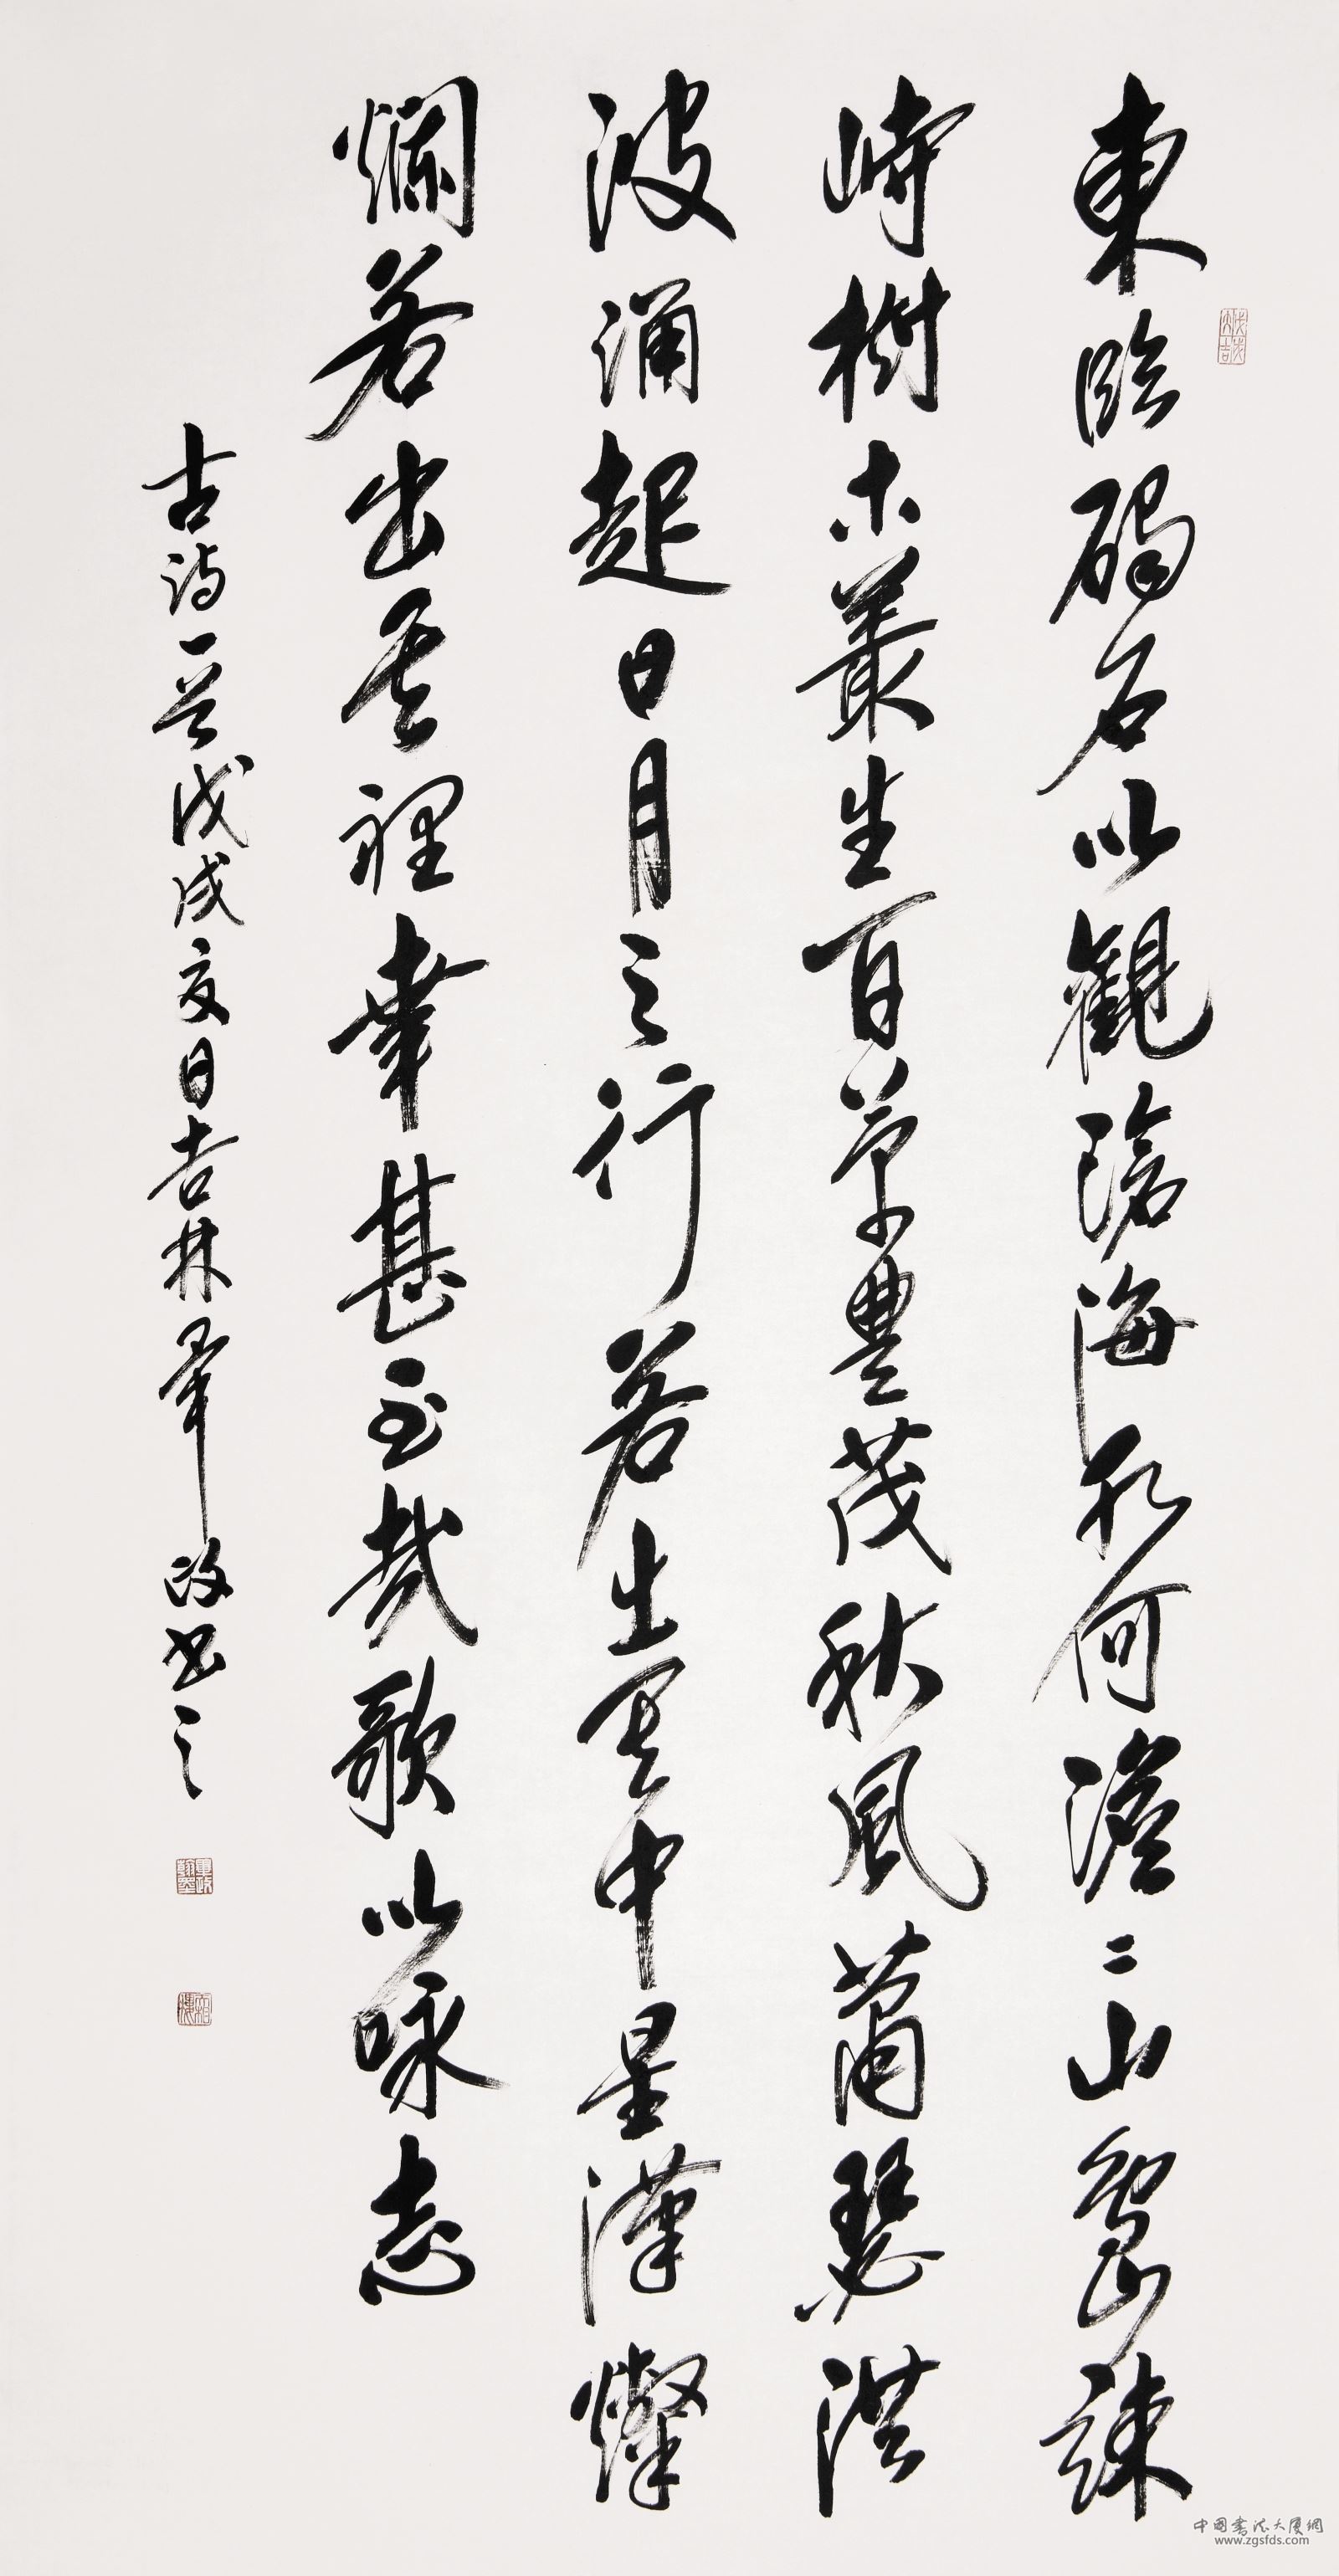 東臨碣石以觀滄海水何澹〻山島竦
峙樹木叢生百草豐茂秋風蕭瑟洪
波涌起日月之行若出其中星漢燦
爛若出其裡幸甚至哉歌以咏志
古詩一首戊戌夏日吉林畢政書之
戊戌大吉
中国書法大厦網
www.zgsfds.com